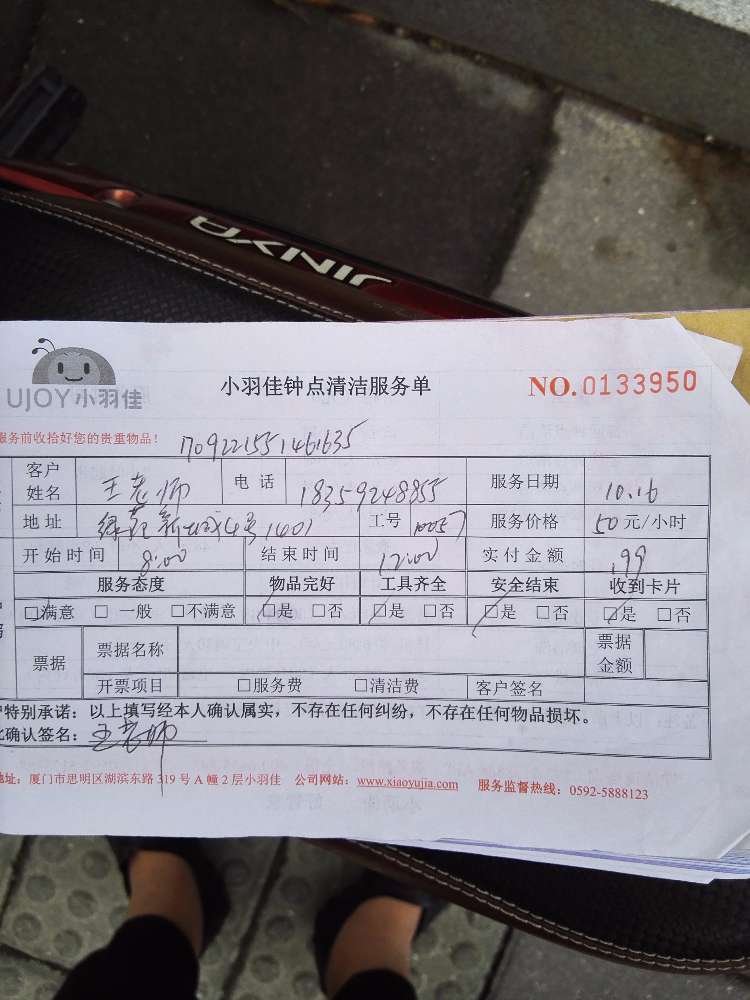 JINYA
UJOY小羽佳
小羽佳钟点清洁服务单
NO.0133950
服务前收拾好您的贵重物品！
1709221551461635
客户姓名 王老师 电话 18359248855 服务日期 10.16
地址 绿苑新城4号1401 工号 10057 服务价格 50元/小时
开始时间 8:00 结束时间 12:00 实付金额 199
服务态度 物品完好 工具齐全 安全结束 收到卡片
□满意 □一般 □不满意 □是 □否 □是 □否 □是 □否 □是 □否
票据 票据名称 票据金额
开票项目 □服务费 □清洁费 客户签名
户特别承诺：以上填写经本人确认属实，不存在任何纠纷，不存在任何物品损坏。
此确认签名：王老师
地址：厦门市思明区湖滨东路319号A幢2层小羽佳 公司网站：www.xiaoyujia.com 服务监督热线：0592-5888123